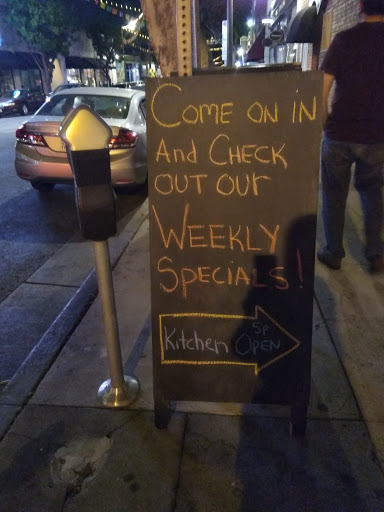 Come on in
And Check
out our
Weekly
Specials!
5p
Kitchen OPEN